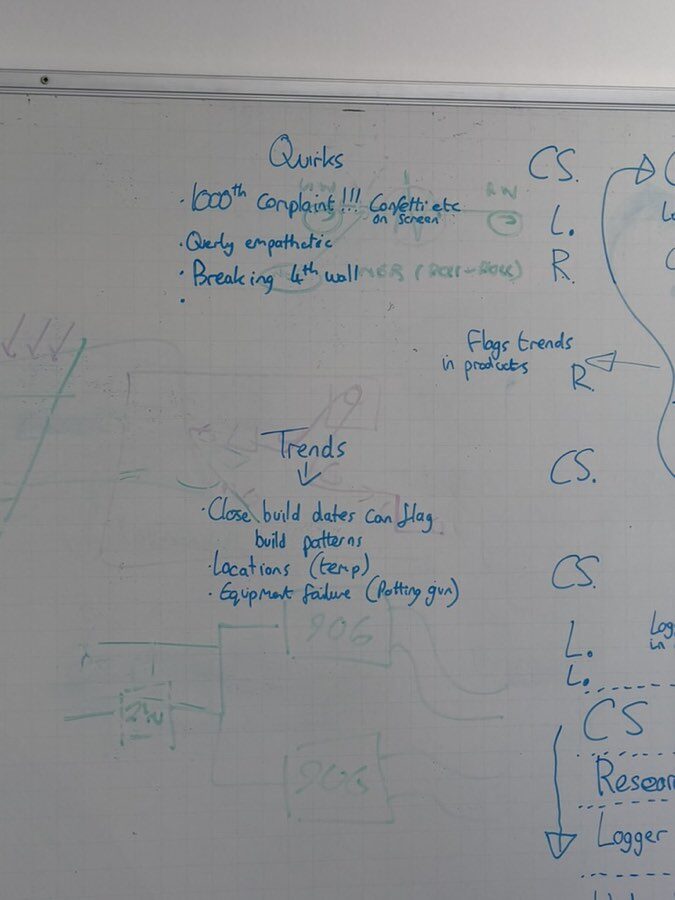 Quirks
· 1000th Complaint !!! Confetti etc
on screen
· Overly empathetic
· Breaking 4th wall
·
CS.
L.
R.
Flags trends
in products
R.
Trends
· Close build dates can flag
build patterns
· Locations (temp)
· Equipment failure (Potting gun)
906
906
CS.
CS.
L.
L.
CS
Logger